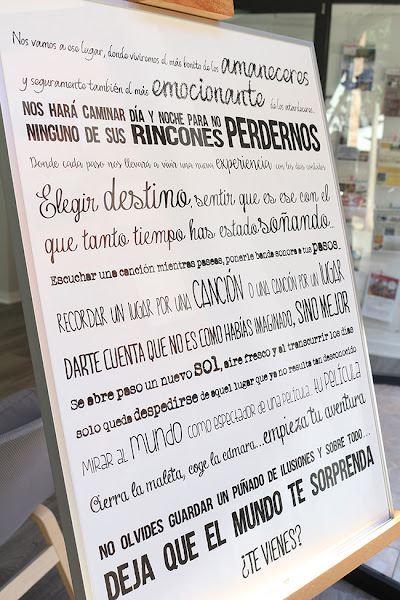 Nos vamos a ese lugar, donde viviremos el más bonito de los amaneceres
y seguramente también el más emocionante de los atardeceres...
NOS HARÁ CAMINAR DÍA Y NOCHE PARA NO
NINGUNO DE SUS RINCONES PERDERNOS
Donde cada paso nos llevará a vivir una nueva experiencia con los días contados
Elegir destino, sentir que es ese con el
que tanto tiempo has estado soñando...
Escuchar una canción mientras paseas, ponerle banda sonora a tus pasos...
RECORDAR UN LUGAR POR UNA CANCIÓN O UNA CANCIÓN POR UN LUGAR
DARTE CUENTA QUE NO ES COMO HABÍAS IMAGINADO, SINO MEJOR
Se abre paso un nuevo sol, aire fresco y al transcurrir los días
solo queda despedirse de aquel lugar que ya no resulta tan desconocido
MIRAR AL MUNDO COMO ESPECTADOR DE UNA PELÍCULA, TU PELÍCULA
Cierra la maleta, coge la cámara... empieza tu aventura
NO OLVIDES GUARDAR UN PUÑADO DE ILUSIONES Y SOBRE TODO...
DEJA QUE EL MUNDO TE SORPRENDA
¿TE VIENES?